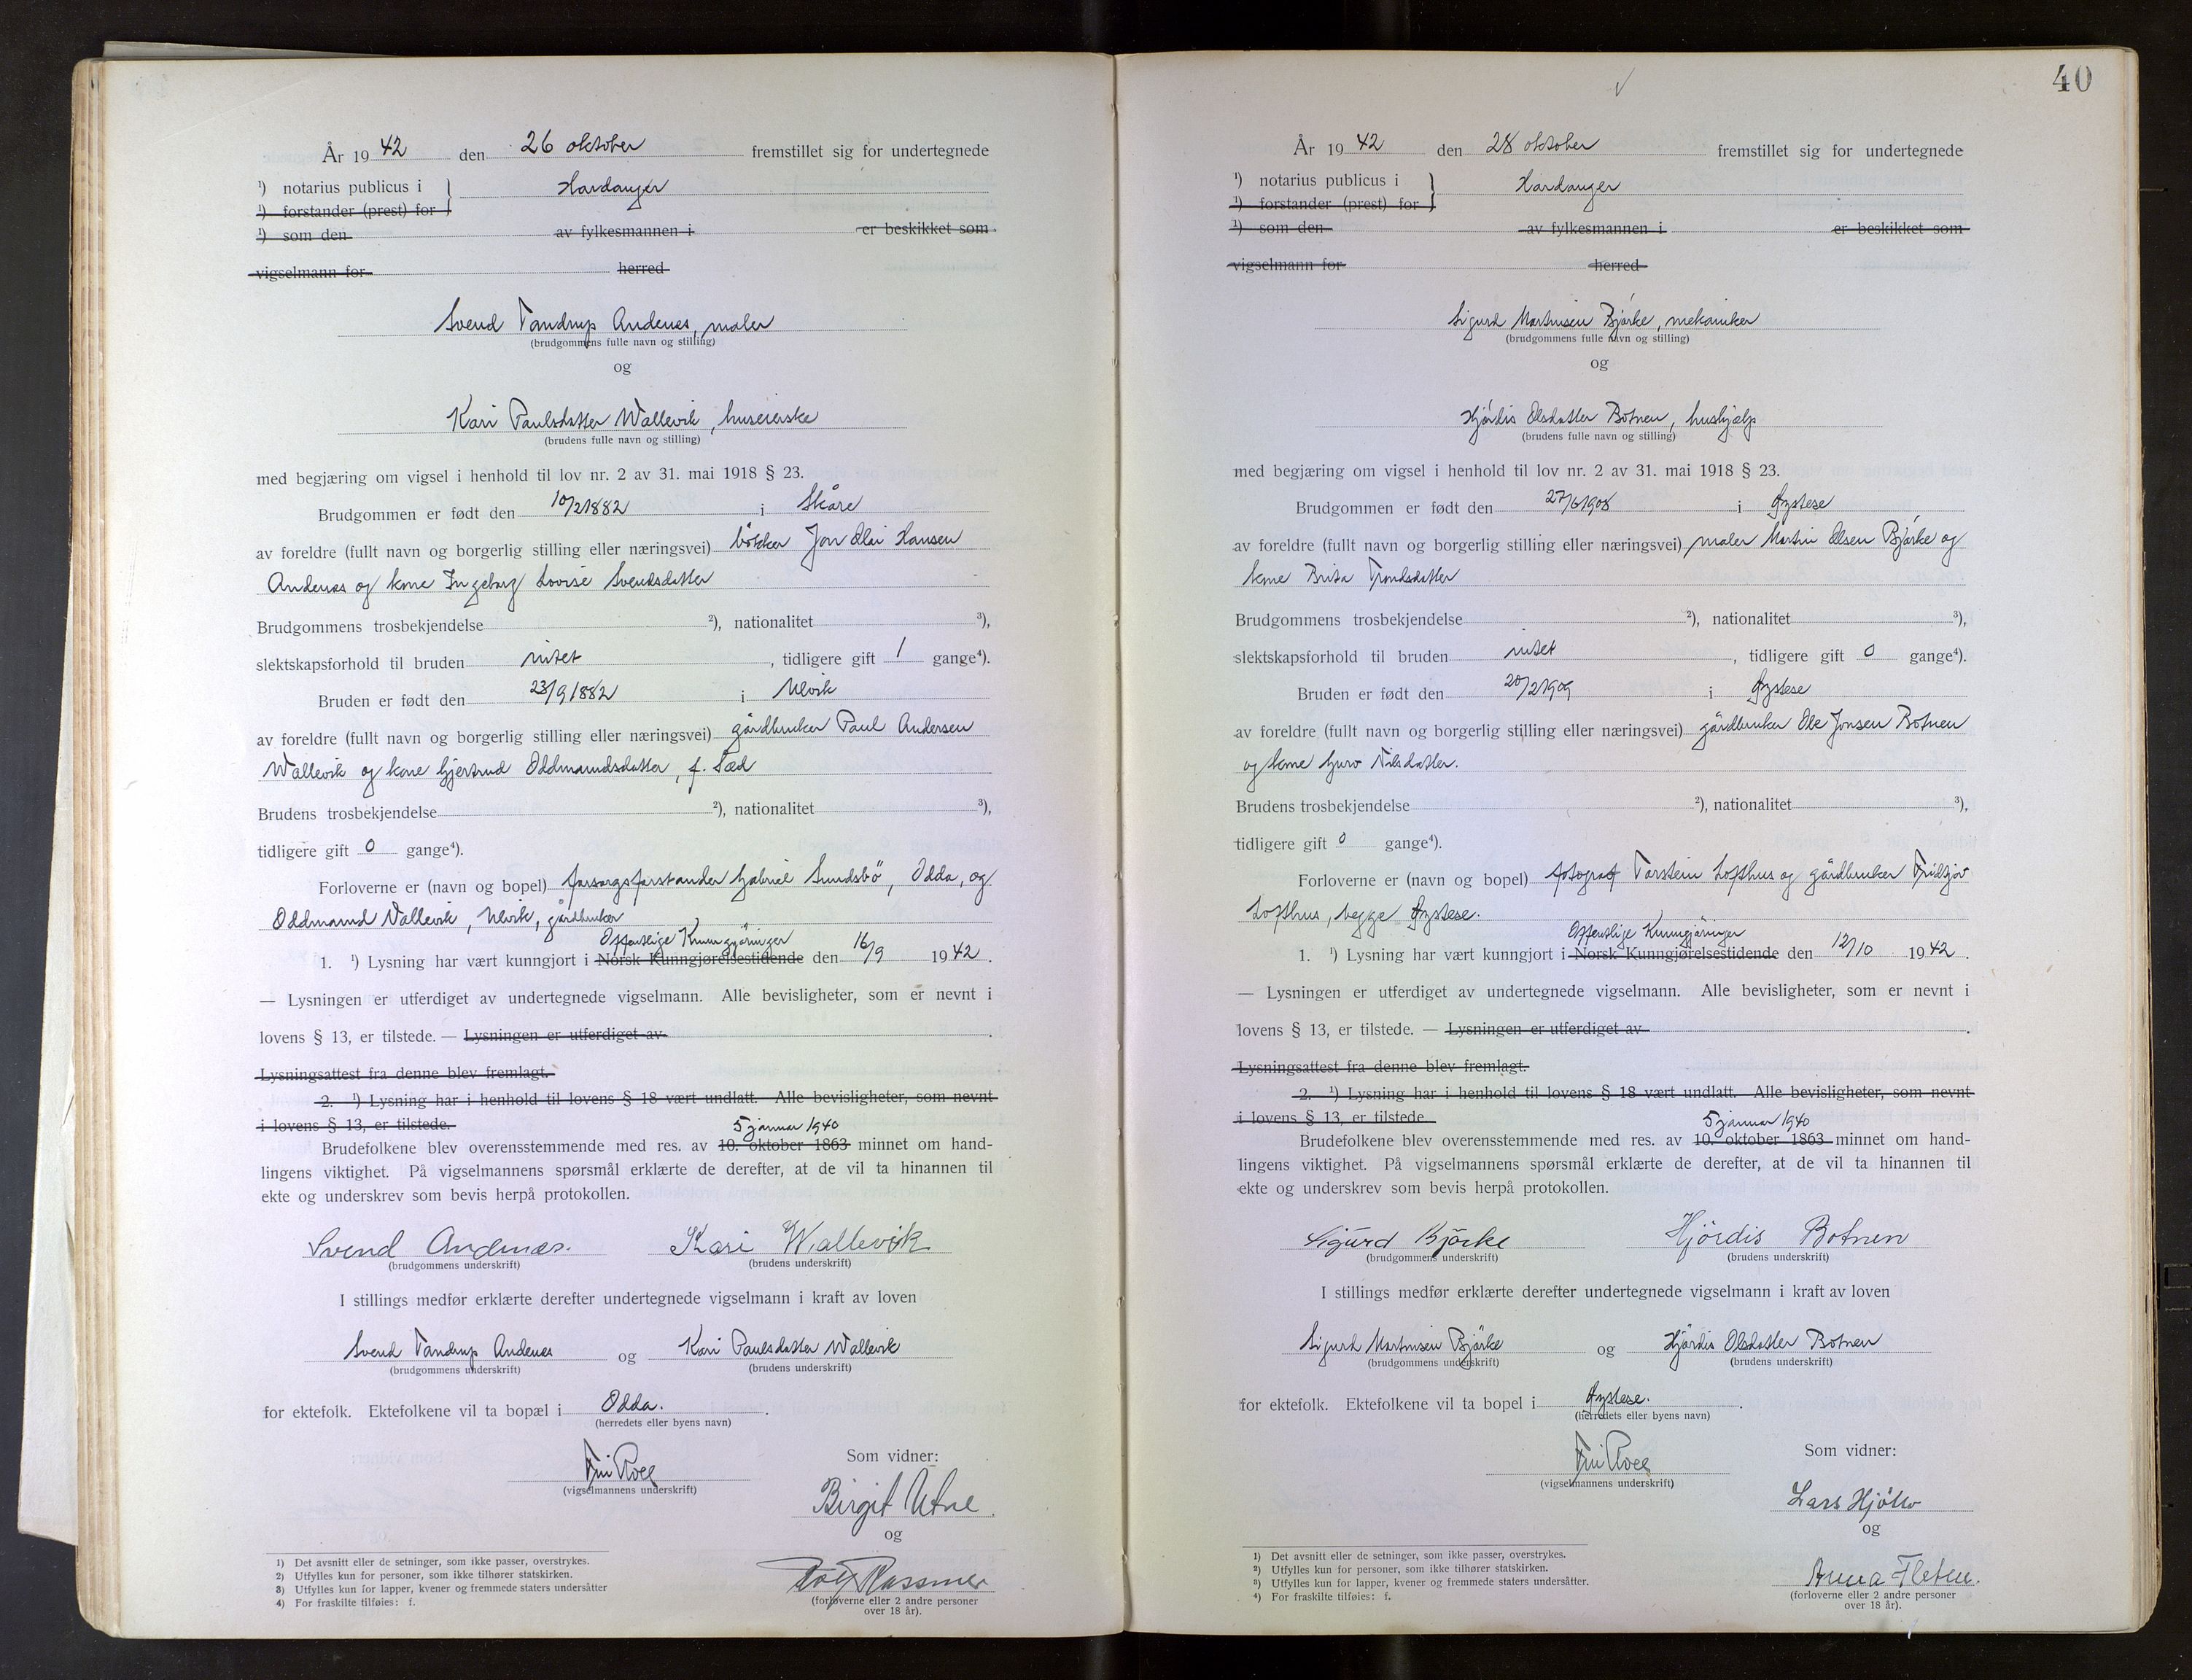 År 1942 den 26 oktober fremstillet sig for undertegnede
¹) notarius publicus i } Hardanger
¹) forstander (prest) for
¹) som den av fylkesmannen i er beskikket som
vigselmann for herred
Svend Tandrup Andenes, maler
(brudgommens fulle navn og stilling)
og
Kari Paulsdatter Wallevik, huseierske
(brudens fulle navn og stilling)
med begjæring om vigsel i henhold til lov nr. 2 av 31. mai 1918 § 23.
Brudgommen er født den 10/2 1882 i Skåre
av foreldre (fullt navn og borgerlig stilling eller næringsvei) bökker Jon Olai Hansen
Andenes og kone Ingeborg Lovise Svendsdatter
Brudgommens trosbekjendelse ²), nationalitet ³),
slektskapsforhold til bruden intet, tidligere gift 1 gange⁴).
Bruden er født den 23/9 1882 i Ulvik
av foreldre (fullt navn og borgerlig stilling eller næringsvei) gårdbruker Paul Andersen
Wallevik og kone Gjertrud Oddmundsdatter, f. Sæd
Brudens trosbekjendelse ²), nationalitet ³),
tidligere gift 0 gange⁴).
Forloverne er (navn og bopel) forsorgsforstander Gabriel Sundsbö, Odda, og
Oddmund Vallevik, Ulvik, gårdbruker
Offentlige Kunngjøringer
1. ¹) Lysning har vært kunngjort i Norsk Kunngjørelsestidende den 16/9 1942.
— Lysningen er utferdiget av undertegnede vigselmann. Alle bevisligheter, som er nevnt i
lovens § 13, er tilstede. — Lysningen er utferdiget av
Lysningsattest fra denne blev fremlagt.
2. ¹) Lysning har i henhold til lovens § 18 vært undlatt. Alle bevisligheter, som nevnt
i lovens § 13, er tilstede.
5 januar 1940
Brudefolkene blev overensstemmende med res. av 10. oktober 1863 minnet om hand-
lingens viktighet. På vigselmannens spørsmål erklærte de derefter, at de vil ta hinannen til
ekte og underskrev som bevis herpå protokollen.
Svend Andenæs. Kari Wallevik
(brudgommens underskrift) (brudens underskrift)
I stillings medfør erklærte derefter undertegnede vigselmann i kraft av loven
Svend Tandrup Andenes og Kari Paulsdatter Wallevik
(brudgommens underskrift) (brudens underskrift)
for ektefolk. Ektefolkene vil ta bopæl i Odda.
(herredets eller byens navn)
Som vidner:
(vigselmannens underskrift)
Birgit Utne.
og
(forloverne eller 2 andre personer
over 18 år).
1) Det avsnitt eller de setninger, som ikke passer, overstrykes.
2) Utfylles kun for personer, som ikke tilhører statskirken.
3) Utfylles kun for lapper, kvener og fremmede staters undersåtter
4) For fraskilte tilføies: f.
40
År 1942 den 28 oktober fremstillet sig for undertegnede
¹) notarius publicus i } Hardanger
¹) forstander (prest) for
¹) som den av fylkesmannen i er beskikket som
vigselmann for herred
Sigurd Martinsen Bjørke, mekaniker
(brudgommens fulle navn og stilling)
og
Hjördis Olsdatter Botnen, hushjelp
(brudens fulle navn og stilling)
med begjæring om vigsel i henhold til lov nr. 2 av 31. mai 1918 § 23.
Brudgommen er født den 27/6 1908 i Øystese
av foreldre (fullt navn og borgerlig stilling eller næringsvei) maler Martin Olsen Bjørke og
kone Brita Trondsdatter
Brudgommens trosbekjendelse ²), nationalitet ³),
slektskapsforhold til bruden intet, tidligere gift 0 gange⁴).
Bruden er født den 20/2 1909 i Øystese
av foreldre (fullt navn og borgerlig stilling eller næringsvei) gårdbruker Ole Jonsen Botnen
og kone Guro Nilsdatter.
Brudens trosbekjendelse ²), nationalitet ³),
tidligere gift 0 gange⁴).
Forloverne er (navn og bopel) fotograf Torstein Lofthus og gårdbruker Fridtjov
Lofthus, begge Øystese.
Offentlige Kunngjøringer
1. ¹) Lysning har vært kunngjort i Norsk Kunngjørelsestidende den 12/10 1942.
— Lysningen er utferdiget av undertegnede vigselmann. Alle bevisligheter, som er nevnt i
lovens § 13, er tilstede. — Lysningen er utferdiget av
Lysningsattest fra denne blev fremlagt.
2. ¹) Lysning har i henhold til lovens § 18 vært undlatt. Alle bevisligheter, som nevnt
i lovens § 13, er tilstede.
5 januar 1940
Brudefolkene blev overensstemmende med res. av 10. oktober 1863 minnet om hand-
lingens viktighet. På vigselmannens spørsmål erklærte de derefter, at de vil ta hinannen til
ekte og underskrev som bevis herpå protokollen.
Sigurd Bjørke Hjördis Botnen
(brudgommens underskrift) (brudens underskrift)
I stillings medfør erklærte derefter undertegnede vigselmann i kraft av loven
Sigurd Martinsen Bjørke og Hjördis Olsdatter Botnen
(brudgommens underskrift) (brudens underskrift)
for ektefolk. Ektefolkene vil ta bopel i Øystese.
(herredets eller byens navn)
Som vidner:
(vigselmannens underskrift)
Lars
og
Anna Fleten.
(forloverne eller 2 andre personer
over 18 år).
1) Det avsnitt eller de setninger, som ikke passer, overstrykes.
2) Utfylles kun for personer, som ikke tilhører statskirken.
3) Utfylles kun for lapper, kvener og fremmede staters undersåtter.
4) For fraskilte tilføies: f.